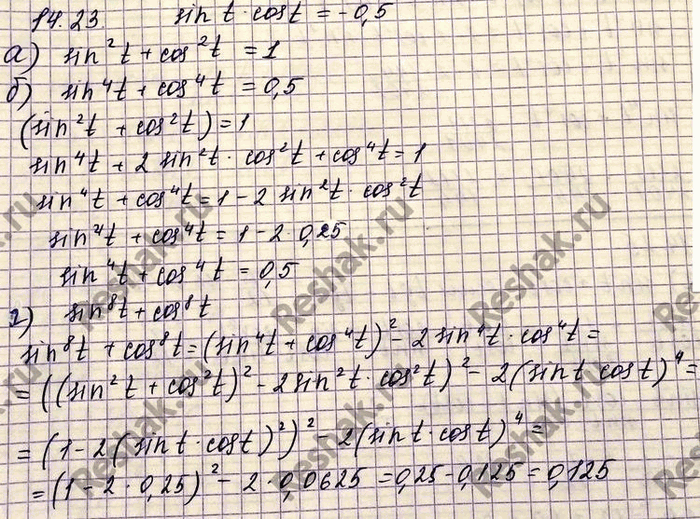 14.23. sin t · cos t = -0,5
а) sin²t + cos²t = 1
б) sin⁴t + cos⁴t = 0,5
(sin²t + cos²t) = 1
sin⁴t + 2 sin²t · cos²t + cos⁴t = 1
sin⁴t + cos⁴t = 1 - 2 sin²t · cos²t
sin⁴t + cos⁴t = 1 - 2 · 0,25
sin⁴t + cos⁴t = 0,5
г) sin⁸t + cos⁸t
sin⁸t + cos⁸t = (sin⁴t + cos⁴t)² - 2 sin⁴t · cos⁴t =
= ((sin²t + cos²t)² - 2 sin²t · cos²t)² - 2 (sin t · cos t)⁴ =
= (1 - 2 (sin t · cos t)²)² - 2 (sin t · cos t)⁴ =
= (1 - 2 · 0,25)² - 2 · 0,0625 = 0,25 - 0,125 = 0,125
Reshak.ru
Reshak.ru
Reshak.ru
Reshak.ru
Reshak.ru
Reshak.ru